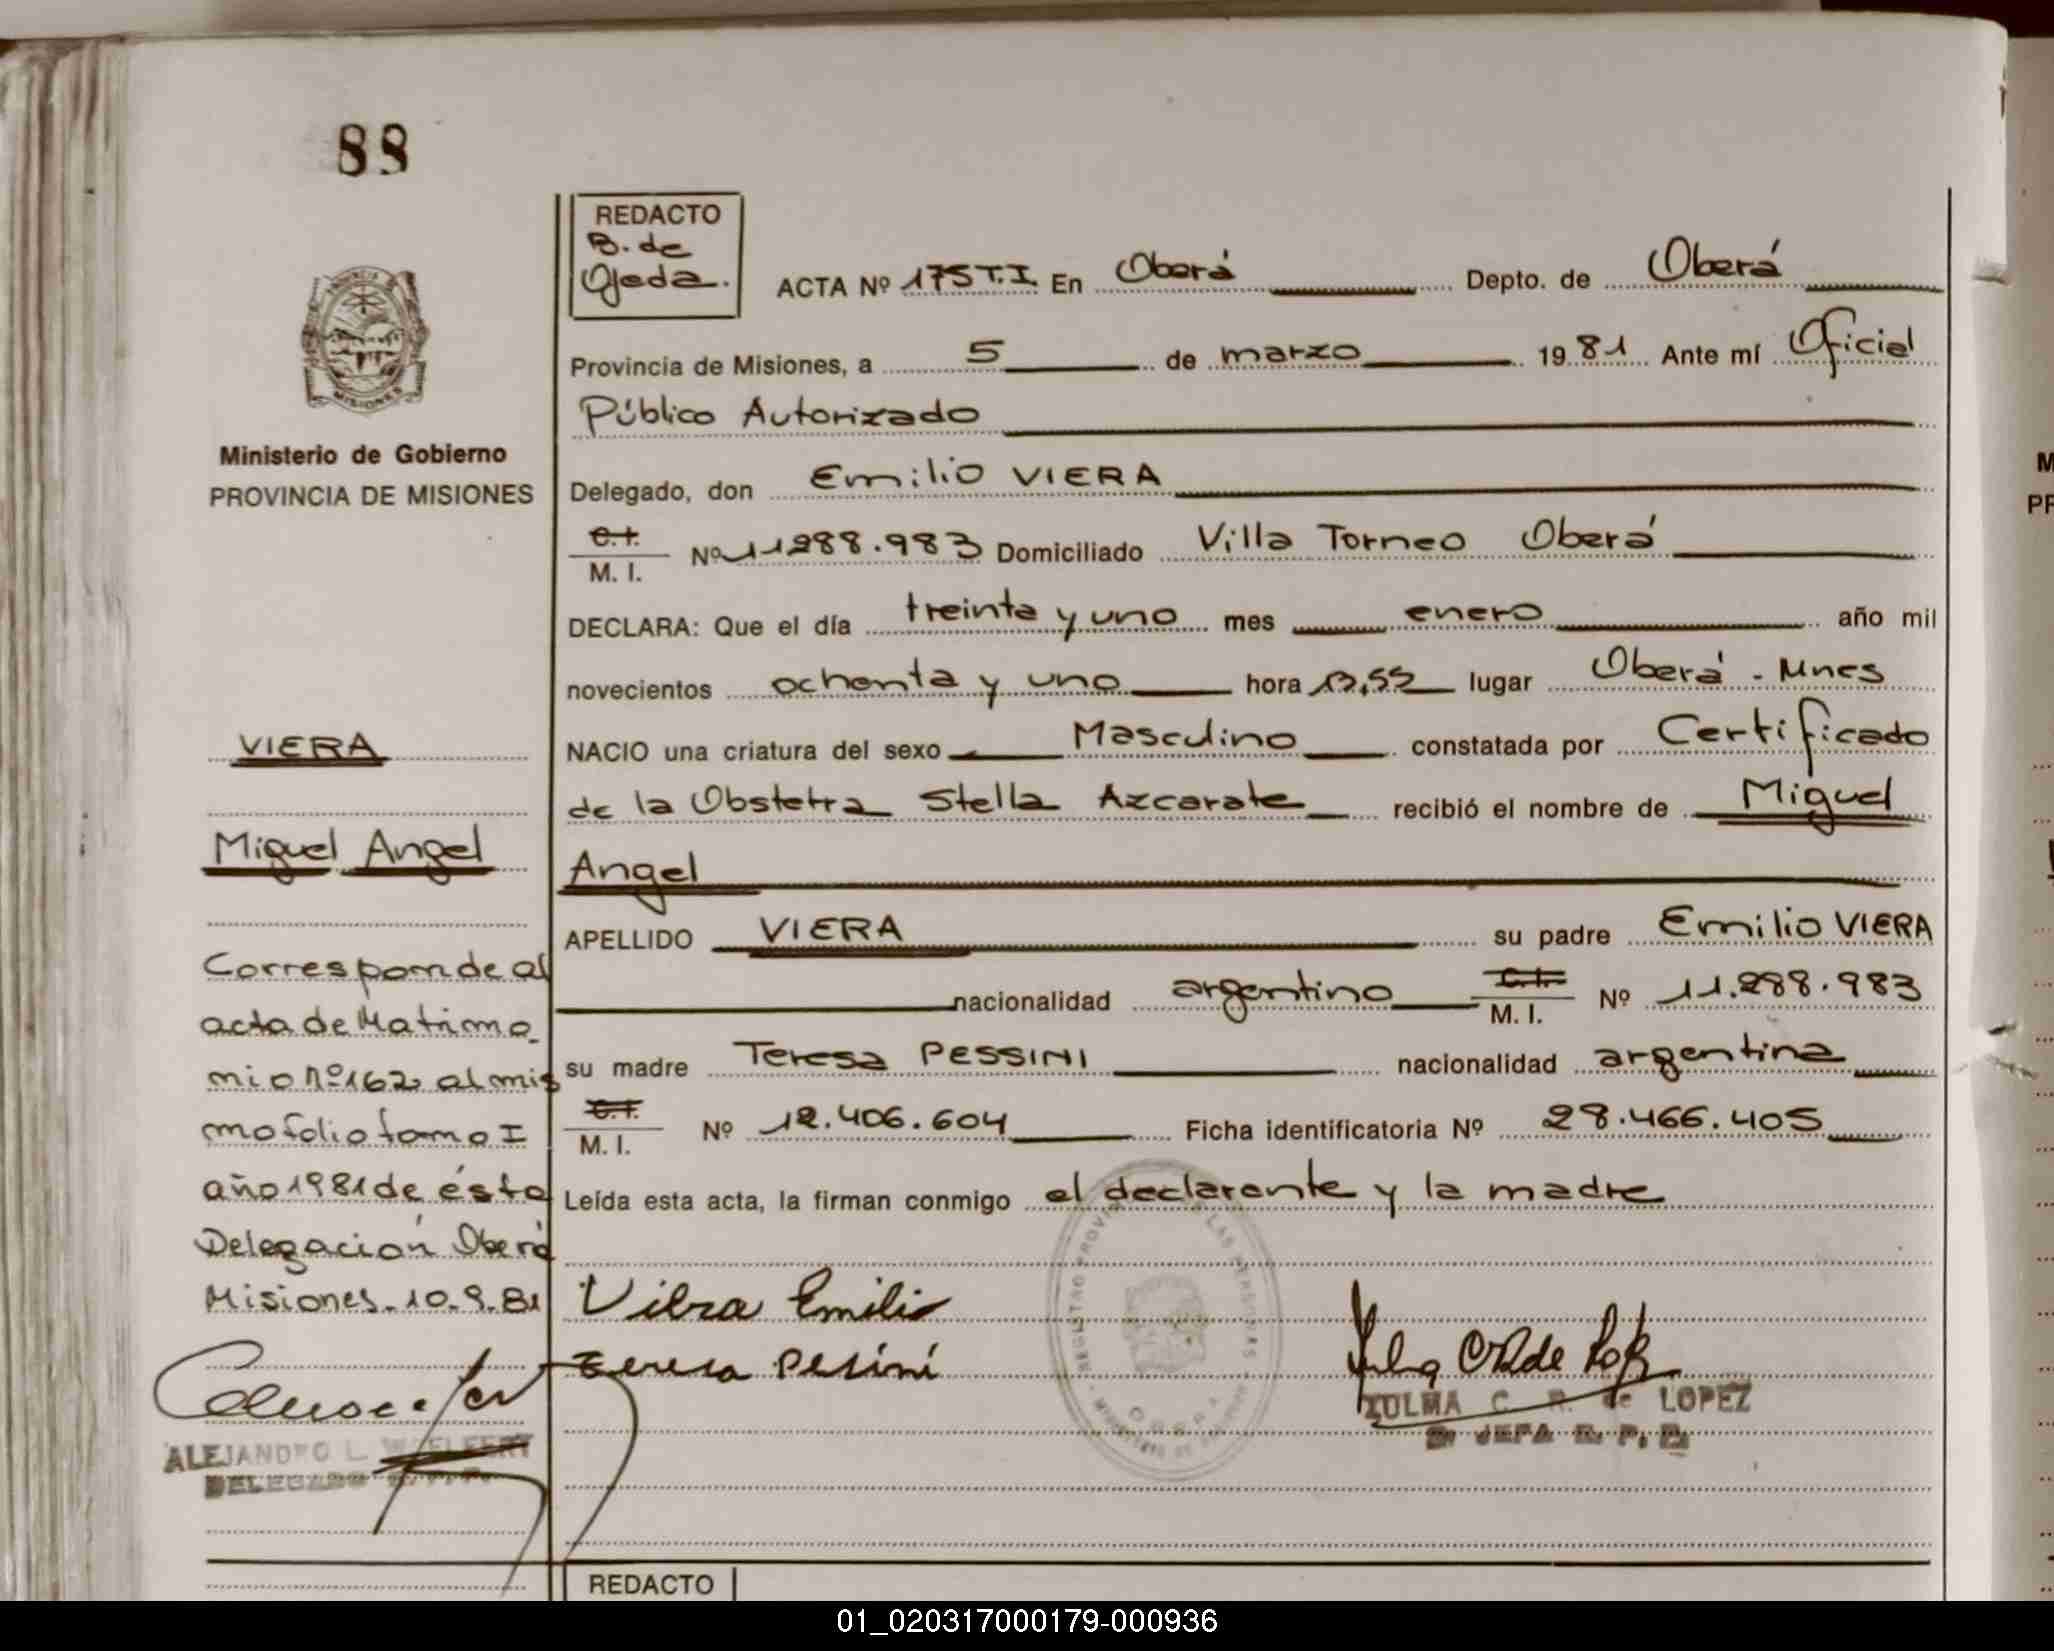 88
REDACTO
B. de
Ojeda.
ACTA Nº 175 T.I. En Oberá Depto. de Oberá
Provincia de Misiones, a 5 de marzo 1981 Ante mí Oficial
Público Autorizado
Delegado, don Emilio VIERA
C.I.
M. I. Nº 11.288.983 Domiciliado Villa Torneo Oberá
DECLARA: Que el día treinta y uno mes enero año mil
novecientos ochenta y uno hora lugar Oberá - Mnes
NACIO una criatura del sexo Masculino constatada por Certificado
de la Obstetra Stella Azcarate recibió el nombre de Miguel
Angel
APELLIDO VIERA su padre Emilio VIERA
nacionalidad argentino C.I. M. I. Nº 11.288.983
su madre Teresa PESSINI nacionalidad argentina
C.I.
M. I. Nº 12.406.604 Ficha identificatoria Nº 28.466.405
Leída esta acta, la firman conmigo el declarante y la madre
Viera Emilio
Teresa Pesini
ZULMA C. R. de LOPEZ
JEFA R. P. P.
PROVINCIA
MISIONES
Ministerio de Gobierno
PROVINCIA DE MISIONES
VIERA
Miguel Angel
Corresponde al
acta de Matrimo
nio nº 162 al mis
mo folio tomo I
año 1981 de ésta
Delegación Oberá
Misiones. 10.9.81
ALEJANDRO L.
DELEGADO
REDACTO
M
PR
01_020317000179-000936